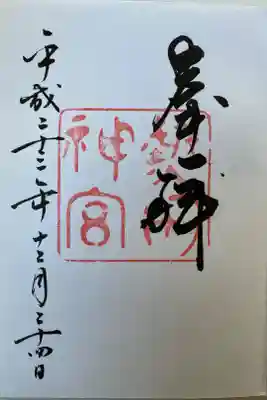 奉拝
熱田
神宮
平成二十二年十二月二十四日